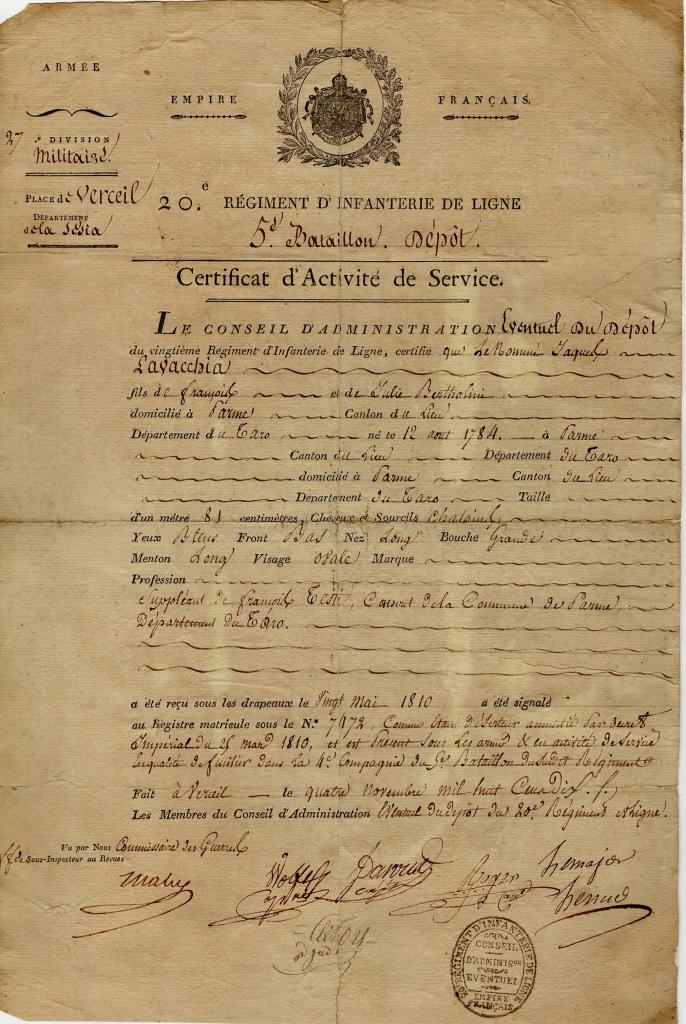 ARMÉE
EMPIRE FRANÇAIS.
27.e DIVISION
Militaire.
PLACE de Verceil
DÉPARTEMENT
de la Sesia
20.e RÉGIMENT D'INFANTERIE DE LIGNE
5.e Bataillon. Dépôt.
Certificat d'Activité de Service.
LE CONSEIL D'ADMINISTRATION Eventuel Du Dépôt
du vingtième Régiment d'Infanterie de Ligne, certifie que Le Nommé Jaques
Lavacchia
fils de françois et de Julie Bertholini
domicilié à Parme Canton du Lieu
Département du Taro né le 12 aout 1784. à Parme
Canton du Lieu Département du Taro
domicilié à Parme Canton du Lieu
Département du Taro Taille
d'un mètre 81 centimètres, Cheveux et Sourcils Chatains
Yeux Bleus Front Bas Nez Long Bouche Grande
Menton Long Visage Ovale Marque
Profession
Suppléant de françois Conscrit de la Commune de Parme,
Département du Taro.
a été reçu sous les drapeaux le Vingt Mai 1810 a été signalé
au Registre matricule sous le N.º 7172, Comme étant déserteur amnistié par décret
Impérial du 25 mars 1810, et est Présent sous les armes & en activité de Service
En qualité de fusilier dans la 4.e Compagnie du 5.e Bataillon du Susdit Régiment
Fait à Verceil le quatre Novembre mil huit Cens Dix
Les Membres du Conseil d'Administration Eventuel du dépôt du 20.e Régiment de Ligne.
Vu par Nous Commissaire des Guerres
ff de Sous-Inspecteur au Revues
Roger Le major
20.e RÉGIMENT D'INFANTERIE DE LIGNE
CONSEIL
D'ADMINIS.ON
EVENTUEL
EMPIRE
FRANÇAIS